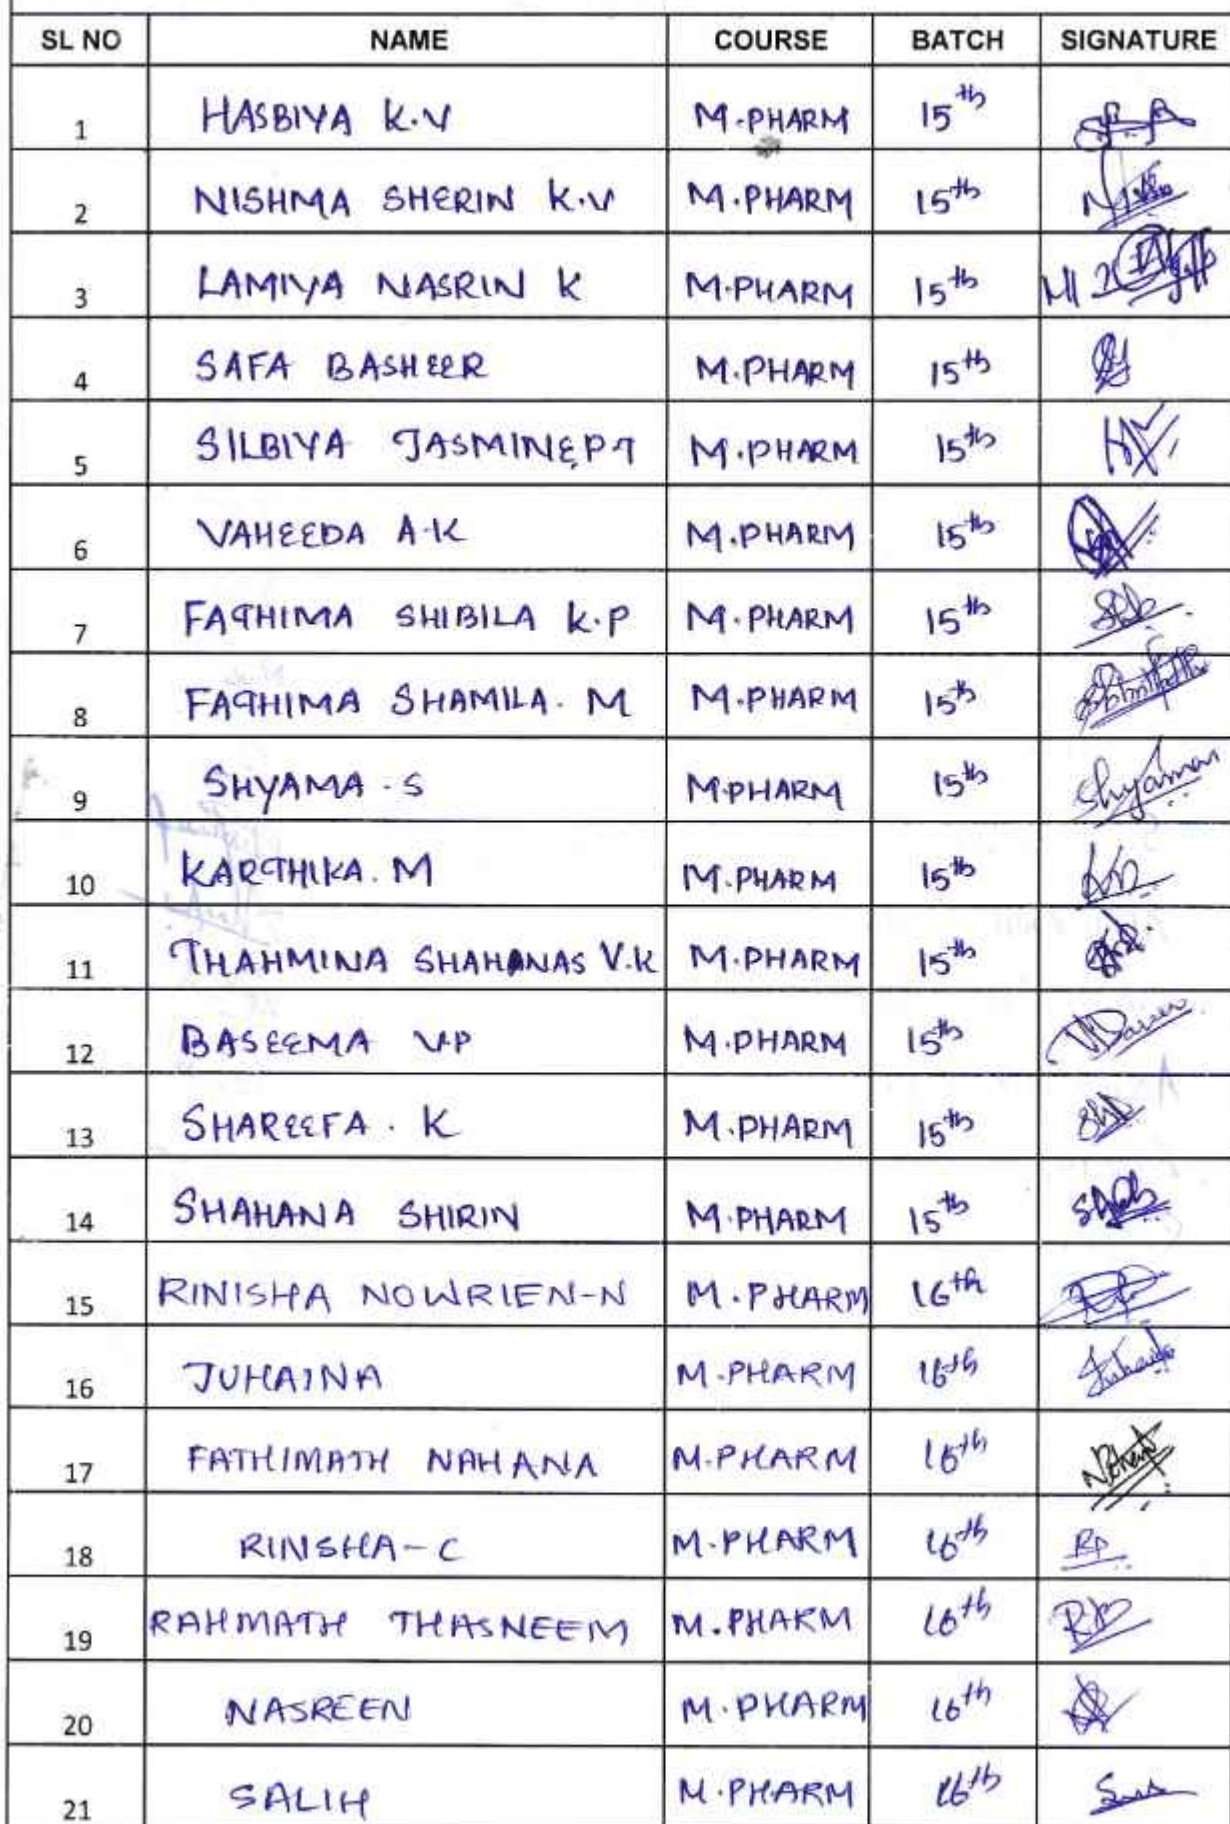 SL NO NAME COURSE BATCH SIGNATURE
1 HASBIYA K.V M.PHARM 15th
2 NISHMA SHERIN K.V M.PHARM 15th
3 LAMIYA NASRIN K M.PHARM 15th
4 SAFA BASHEER M.PHARM 15th
5 SILBIYA JASMINE PT M.PHARM 15th
6 VAHEEDA A.K M.PHARM 15th
7 FATHIMA SHIBILA K.P M.PHARM 15th
8 FATHIMA SHAMILA. M M.PHARM 15th
9 SHYAMA . S M.PHARM 15th Shyama
10 KARTHIKA. M M.PHARM 15th
11 THAHMINA SHAHANAS V.K M.PHARM 15th
12 BASEEMA V.P M.PHARM 15th
13 SHAREEFA . K M.PHARM 15th
14 SHAHANA SHIRIN M.PHARM 15th
15 RINISHA NOWRIEN-N M.PHARM 16th
16 JUHAINA M.PHARM 16th
17 FATHIMATH NAHANA M.PHARM 16th
18 RINSHA-C M.PHARM 16th
19 RAHMATH THASNEEM M.PHARM 16th
20 NASREEN M.PHARM 16th
21 SALIH M.PHARM 16th